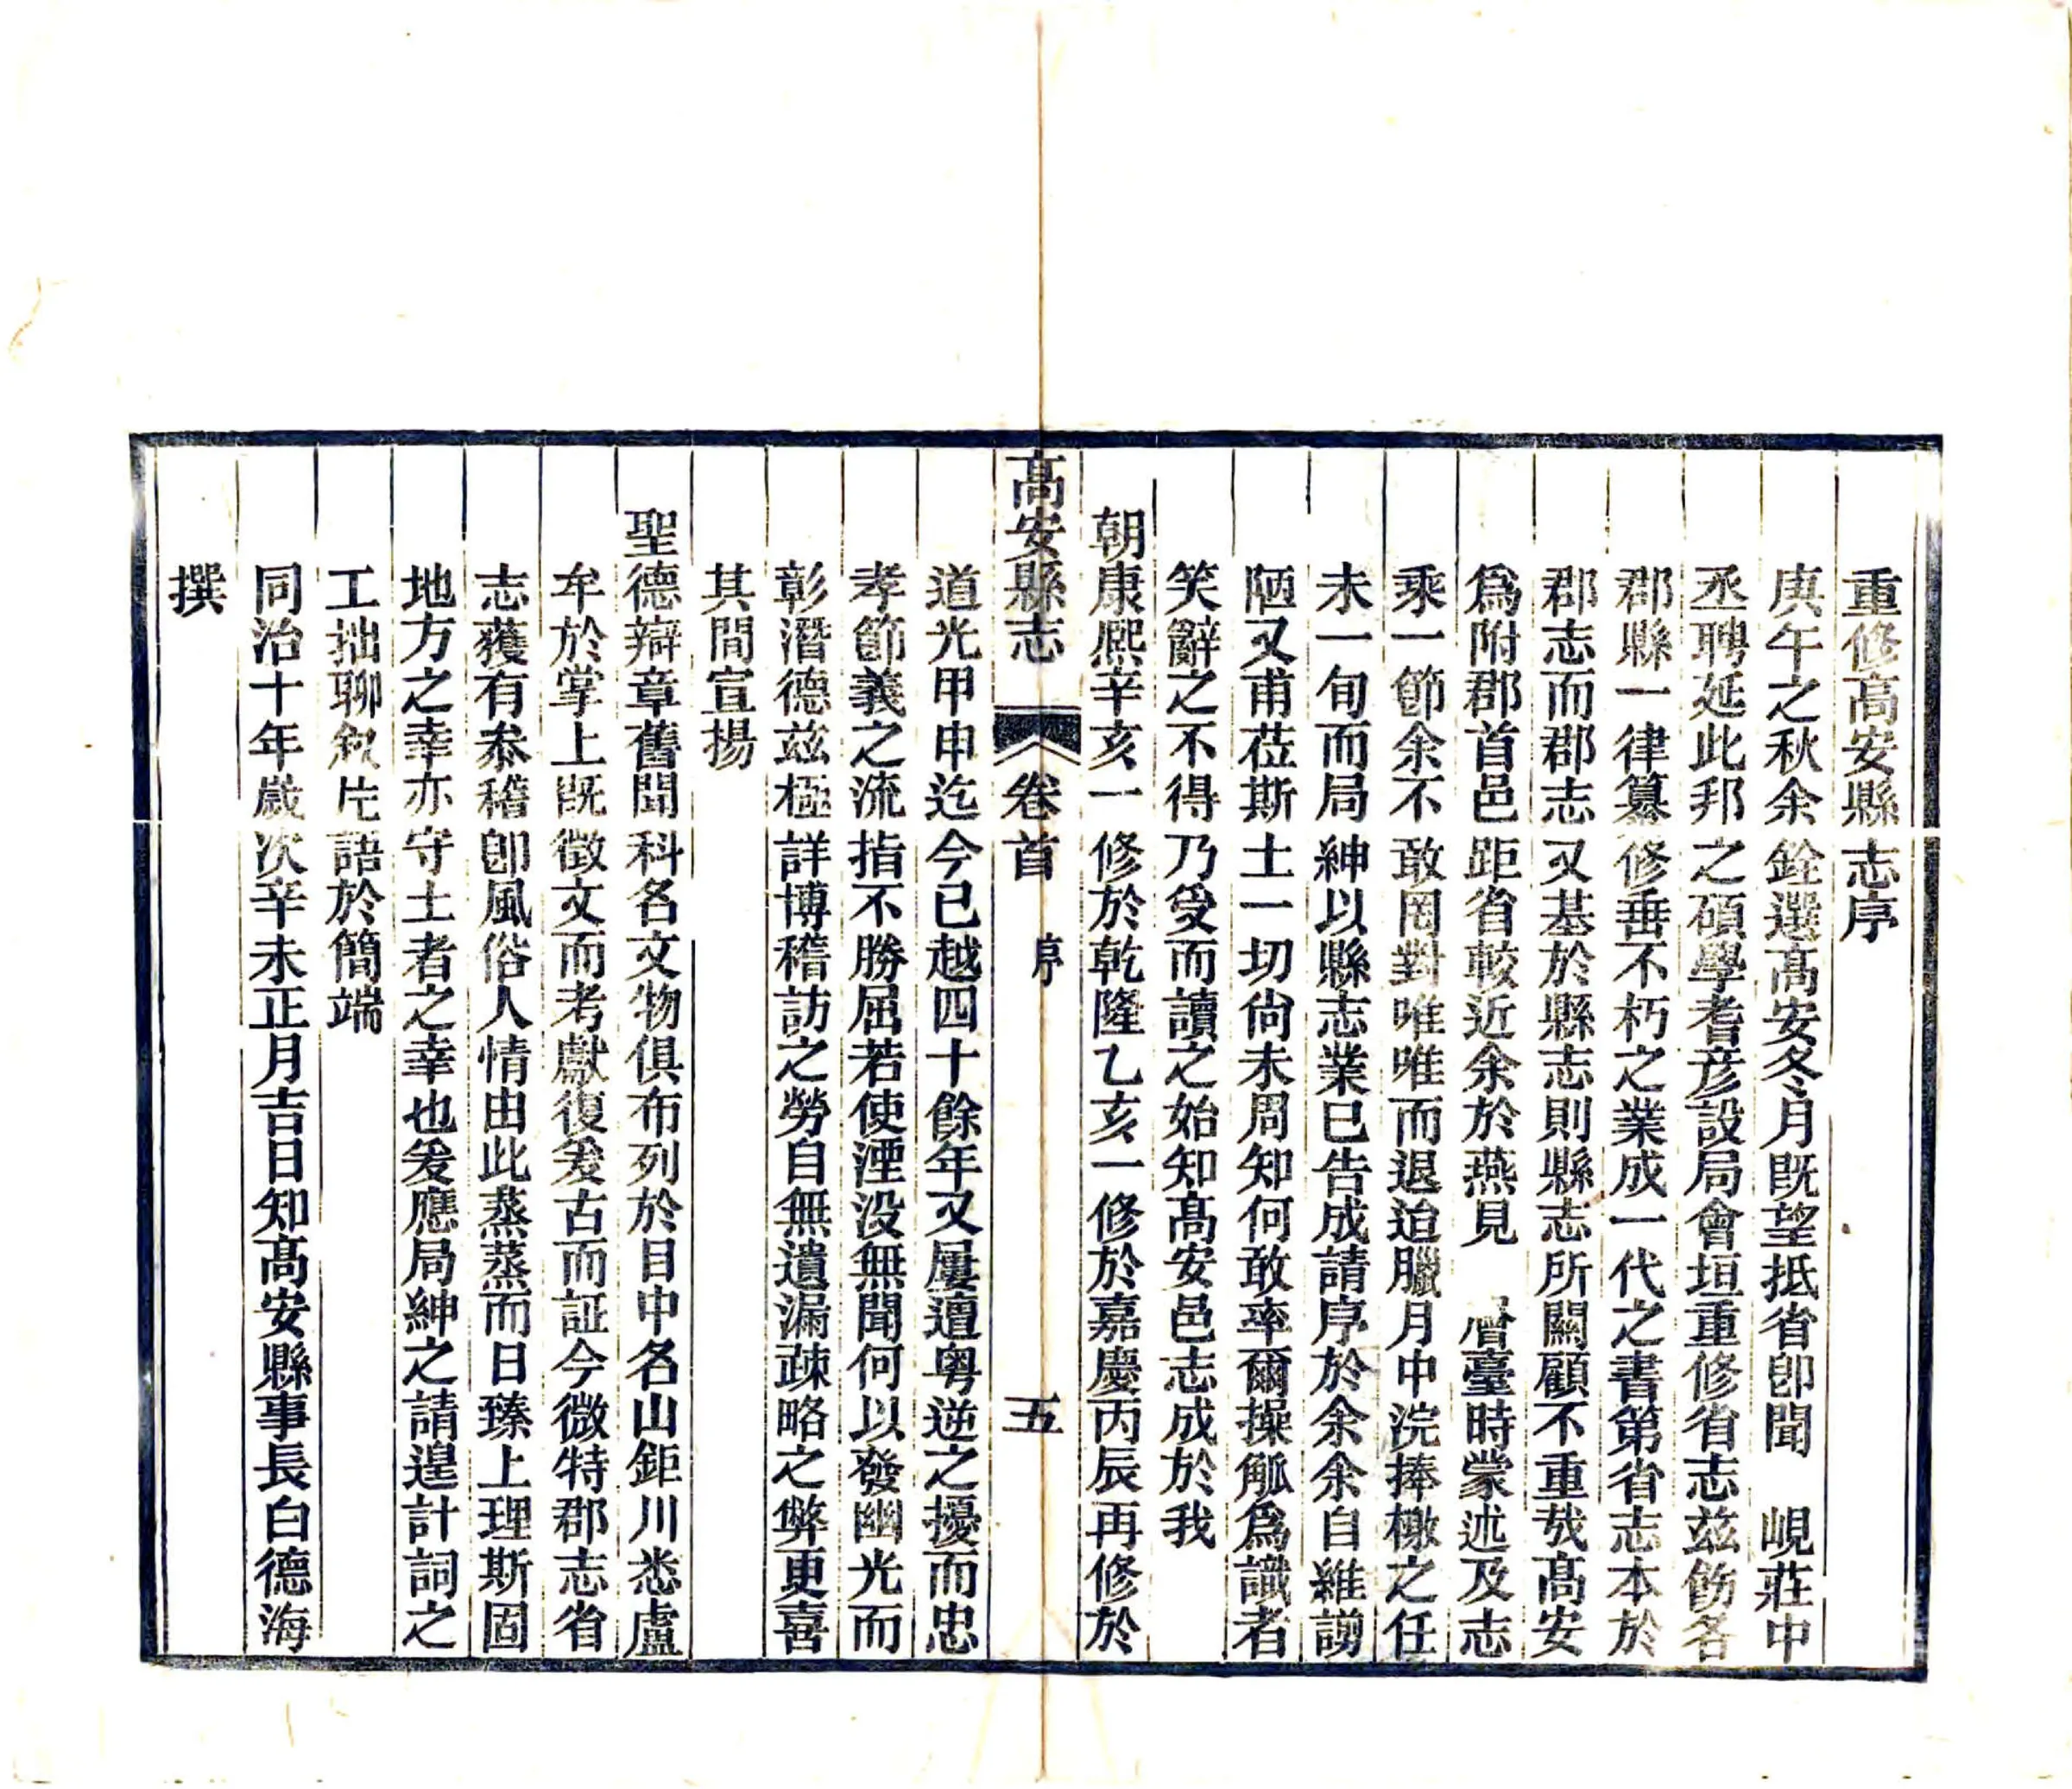 重修高安縣志序
庚午之秋余銓選高安冬月既望抵省卽聞　峴莊中
丞聘延此邦之碩學耆彦設局會垣重修省志茲飭各
郡縣一律纂修垂不朽之業成一代之書第省志本於
郡志而郡志又基於縣志則縣志所關顧不重哉高安
爲附郡首邑距省較近余於燕見　層臺時蒙述及志
乘一節余不敢罔對唯唯而退迨臘月中浣捧檄之任
未一旬而局紳以縣志業已告成請序於余余自維謭
陋又甫莅斯土一切尙未周知何敢率爾操觚爲識者
笑辭之不得乃受而讀之始知高安邑志成於我
朝康熙辛亥一修於乾隆乙亥一修於嘉慶丙辰再修於
高安縣志　卷首　序　五
道光甲申迄今已越四十餘年又屢遭粤逆之擾而忠
孝節義之流指不勝屈若使湮没無聞何以發幽光而
彰潛德茲極詳博稽訪之勞自無遺漏疎略之弊更喜
其間宣揚
聖德辯章舊聞科名文物俱布列於目中名山鉅川悉盧
牟於掌上旣徵文而考獻復爰古而証今微特郡志省
志獲有叅稽卽風俗人情由此蒸蒸而日臻上理斯固
地方之幸亦守土者之幸也爰應局紳之請遑計詞之
工拙聊叙片語於簡端
同治十年歲次辛未正月吉日知高安縣事長白德海
撰